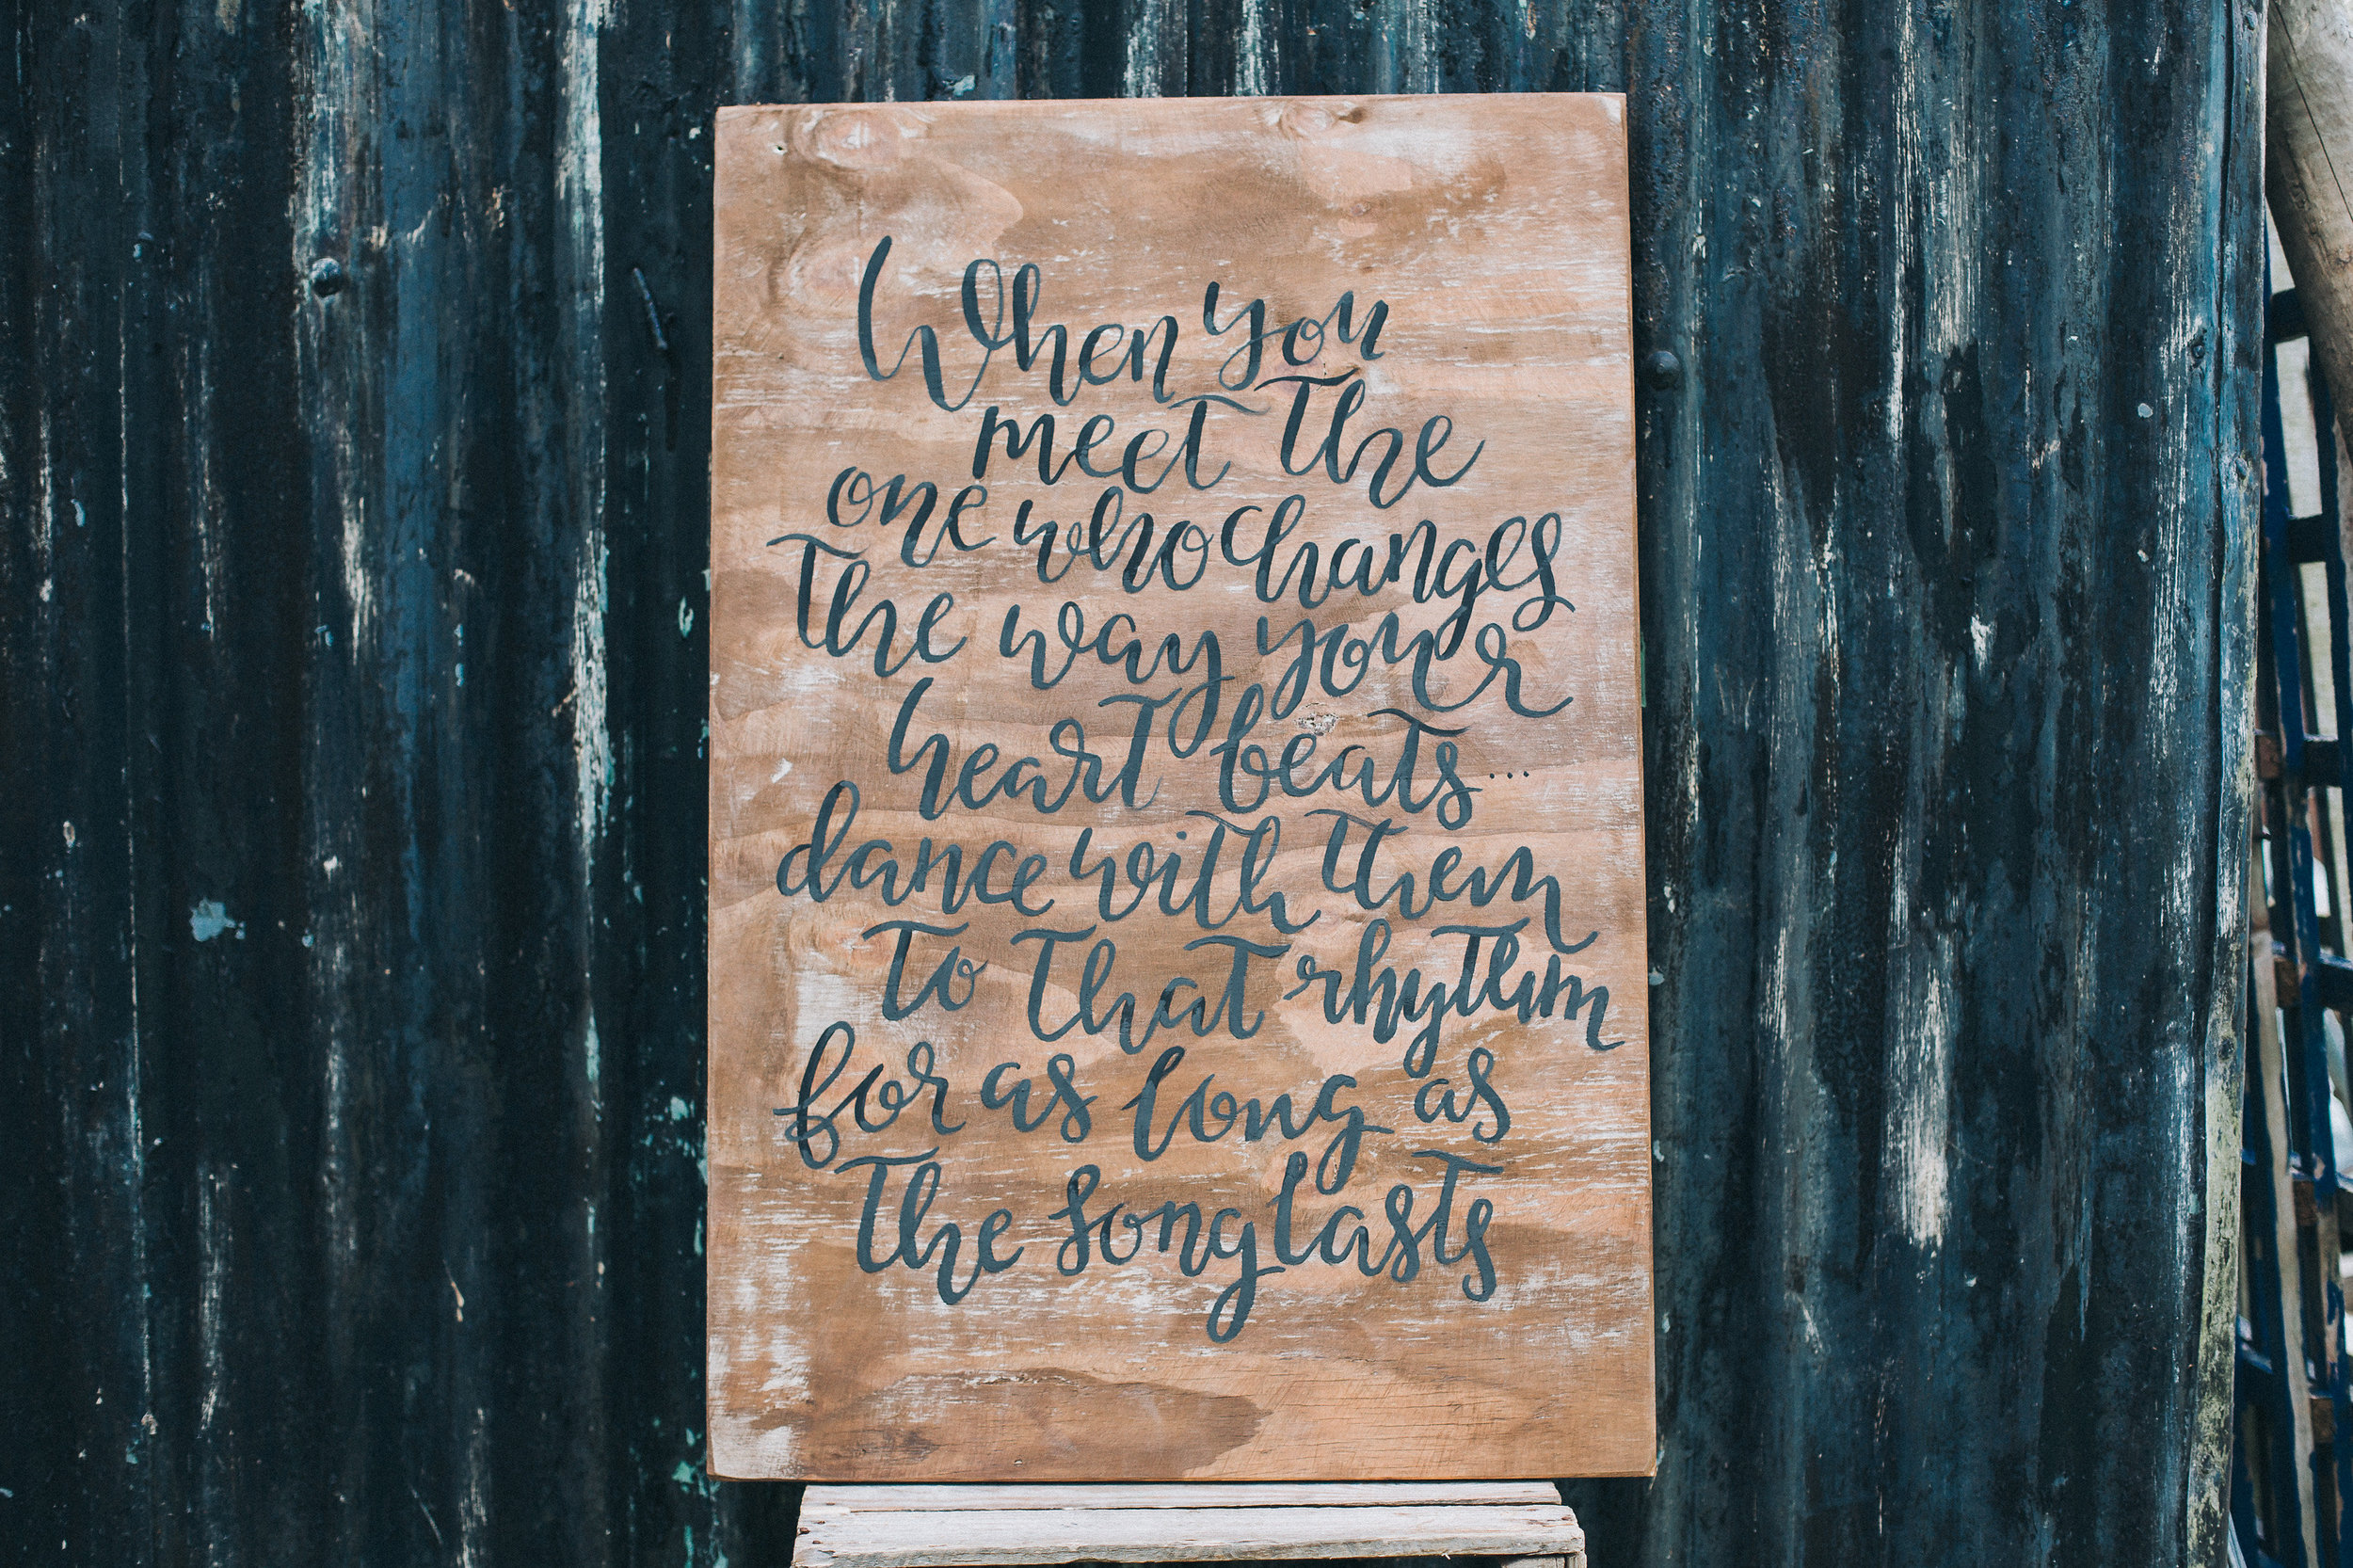 When you
meet the
one who changes
the way your
heart beats...
dance with them
to that rhythm
for as long as
the song lasts